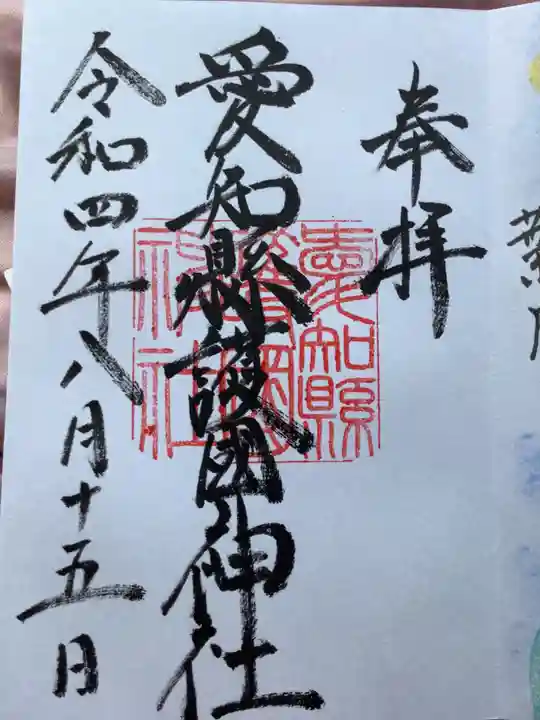 奉拝
愛知縣護國神社
愛知縣
護國
神社
令和四年八月十五日